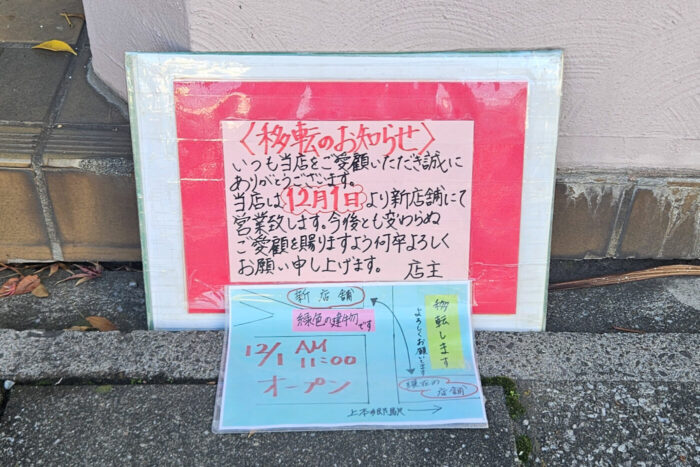 〈移転のお知らせ〉
いつも当店をご愛顧いただき誠に
ありがとうございます。
当店は12月1日より新店舗にて
営業致します。今後とも変わらぬ
ご愛顧を賜りますよう何卒よろしく
お願い申し上げます。 店主
新店舗
緑色の建物です
12/1 AM
11:00
オープン
移転します
よろしくお願いします
現在の
店舗